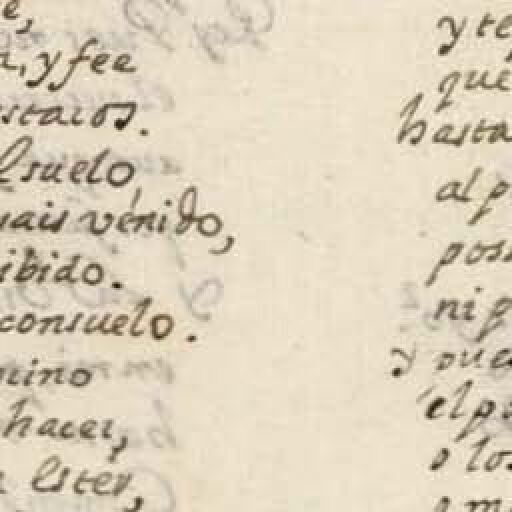 e,
a, y fee
stacos.
el suelo,
uais venido,
ibido.
consuelo.
mino
hacer,
a Ester,
y te
que
hasta
al p
poss
ni p
y
el p
o los